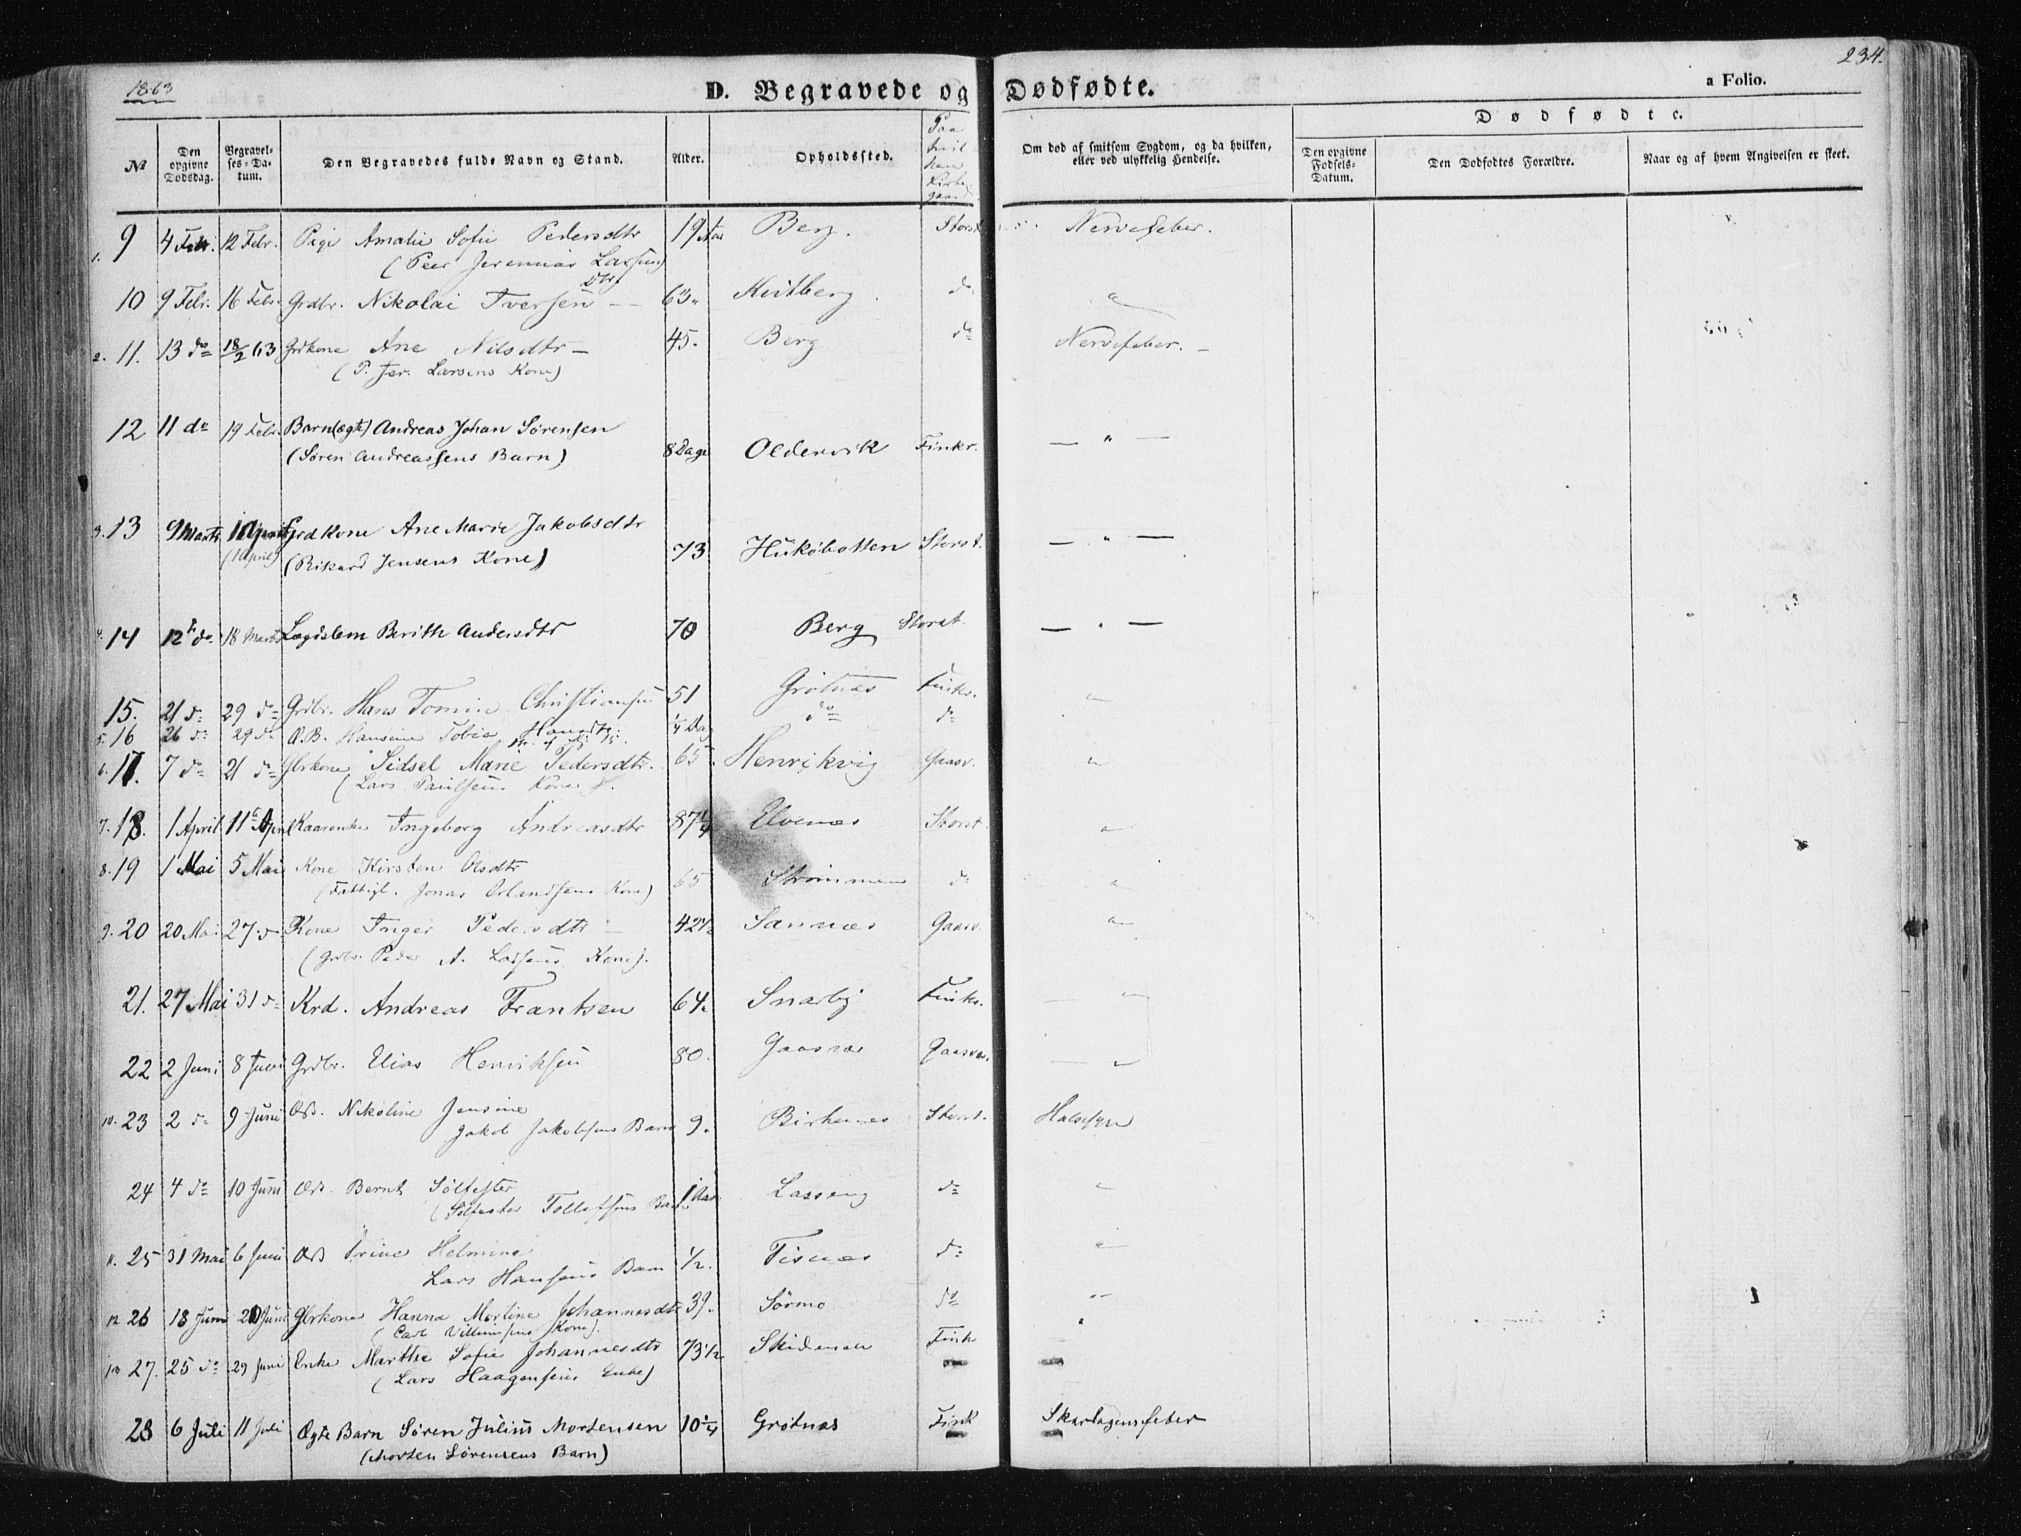 1863
234.
D. Begravede og Dødfødte.
a Folio.
Dødfødte.
№
Den opgivne Dødsdag.
Begravelses-Datum.
Den Begravedes fulde Navn og Stand.
Alder.
Opholdssted.
Paa hvilken Kirkegaard
Om død af smitsom Sygdom, og da hvilken, eller ved ulykkelig Hendelse.
Den opgivne Fødselsdatum.
Den Dødfødtes Forældre.
Naar og af hvem Angivelsen er skeet.
1. 9 4 Febr. 12 Febr. Pige Amalie Sofie Pedersdtr 19 Aar Berg Storst. Nervefeber.
(Peer Jeremias Larsens
Dtr)
10 9 Febr. 16 Febr. Grdbr. Nikolai Iversen 63 Kvitberg do "
2. 11. 13 do 18/2 63 Grdkone Ane Nilsdtr 45. Berg do Nervefeber.
(P. Jer. Larsens Kone)
12 11 do 19 Febr. Barn (ægte) Andreas Johan Sørensen
(Søren Andreassens Barn) 8 Dage Oldervik Finkr. — " —
3. 13 9 Marts 1 April Grdkone Ane Marie Jakobsdtr
(1 April) (Rikard Jensens Kone) 73 Hukøbotten Storst. — " —
4. 14 12 do 18 Marts Lægdslem Berith Andersdtr 70 Berg Storst. — " —
15. 21 do 29 do Grdbr. Hans Tomin Christiansen 51 Grötnæs Finkr. "
5. 16 26 do 29 do Æ.B. Hansine Tobia Hansdtr 1/4 Dag do do
6. 17. 7 do 21 do Gbrkone Sidsel Marie Pedersdtr. 65 Henrikvig Gaasv. "
(Lars Paulsens Kone).
7. 18. 1 April 11 April Kaarenke Ingeborg Andreasdtr 87 1/4 Elvenæs Storst. "
8. 19 1 Mai 5 Mai Kone Kirsten Olsdtr
(Fattigl. Jonas Erlandsens Kone) 65 Strømmen do "
9. 20 20 Mai 27 do Kone Inger Pedersdtr 42 1/2 Sannæs Gaasv. "
(Grdbr. Peder A. Larsens Kone).
21. 27 Mai 31 do Krd. Andreas Frantsen 64. Snarby Finkr. — "
22 2 Juni 8 Juni Grdbr. Elias Henriksen 80. Gaasvær Gaasvær. — "
10. 23 2 do 9 Juni ÆB. Nikoline Jensine
Jakob Jakobsens Barn 9. Birkenes Storst. Halssyge
24 4 do 10 Juni ÆB. Bernt Sølfester
(Sølfester Tollefsens Barn 1 Aar Lasseng do "
11. 25 31 Mai 6 Juni ÆB Trine Helmine
Lars Hansens Barn 1/2. Tisnæs do "
12 26 18 Juni 20 Juni Gbrkone Hanna Martine Johannesdtr 39. Sörmo do "
(Carl Villumsens Kone).
13 27. 25 do 29 Juni Enke Marthe Sofie Johannesdtr 73 1/2 Skidenell Fink
(Lars Haagensens Enke)
28 6 Juli 11 Juli Ægte Barn Søren Julius Mortensen 10 1/4 Grøtnæs Fink Skarlagensfeber
(Morten Sørensens Barn)